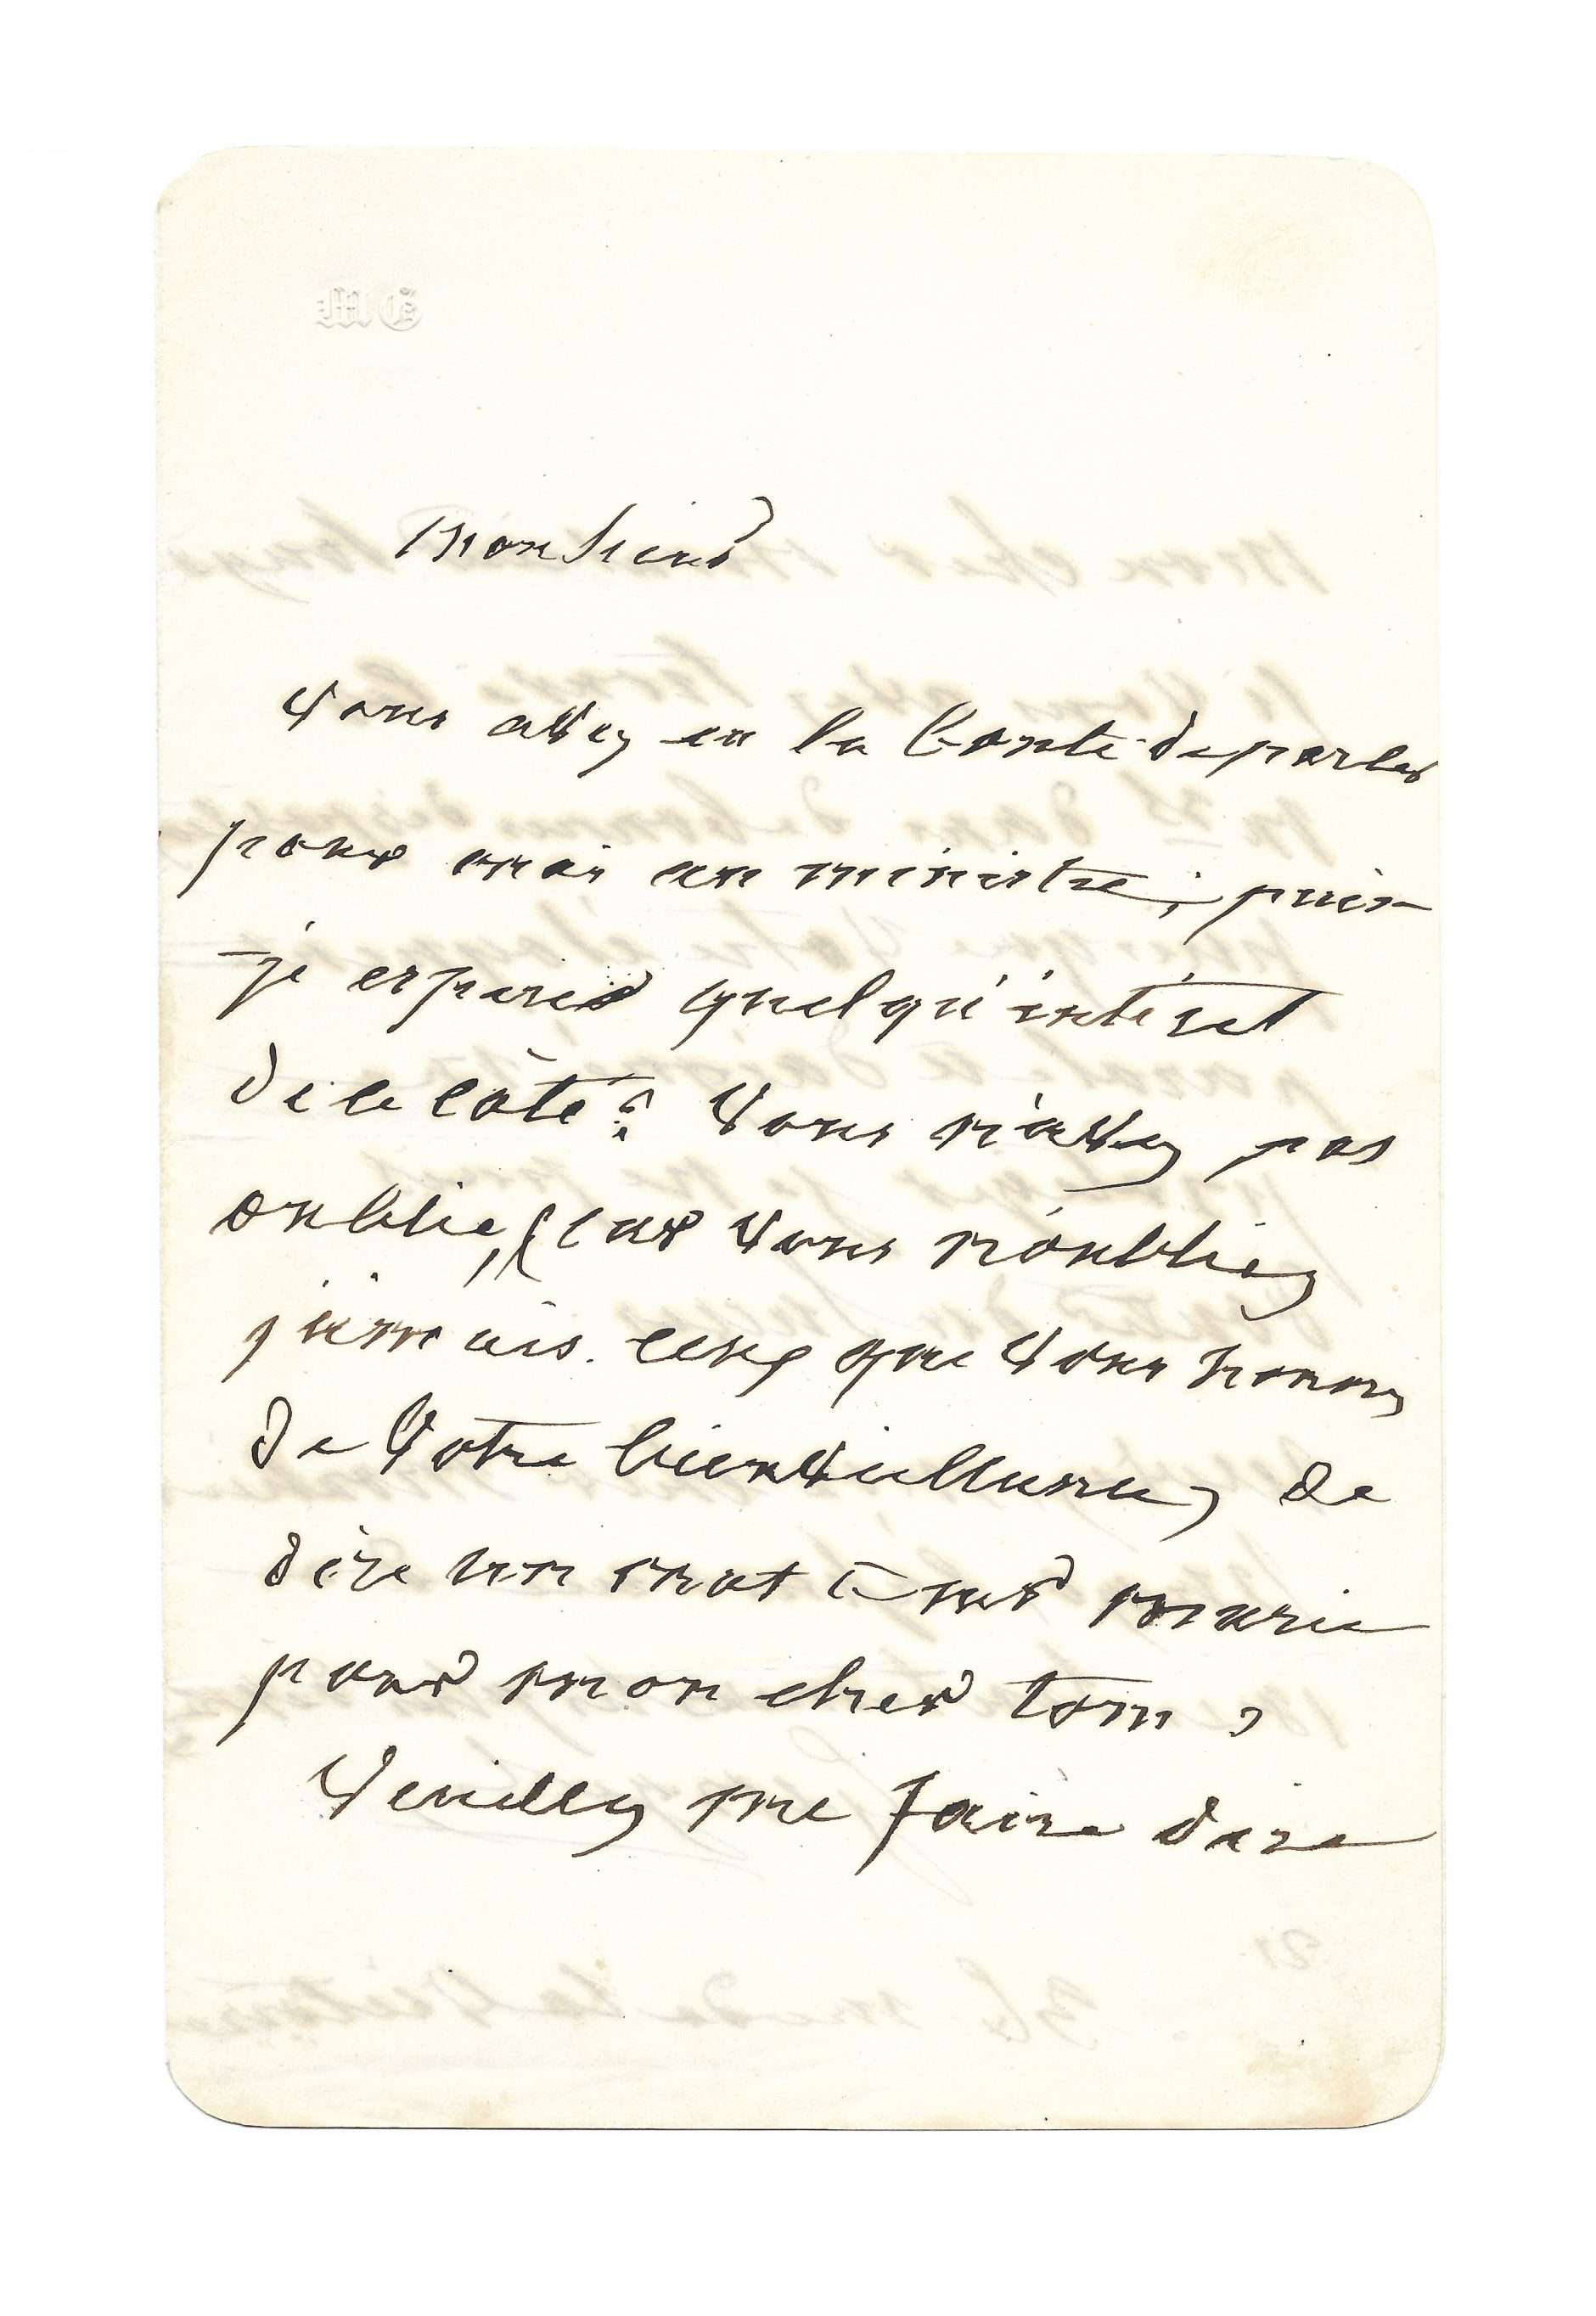 ME
Monsieur
Vous avez eu la bonté de parler
pour moi au ministre; puis-
-je espérer quelqu'intéret
de ce côté? Vous n'avez pas
oublié, (car vous n'oubliez
jamais ceux que vous honorez
de votre bienveillance, de
dire un mot à
pour mon cher tom,
Veuillez me faire dire